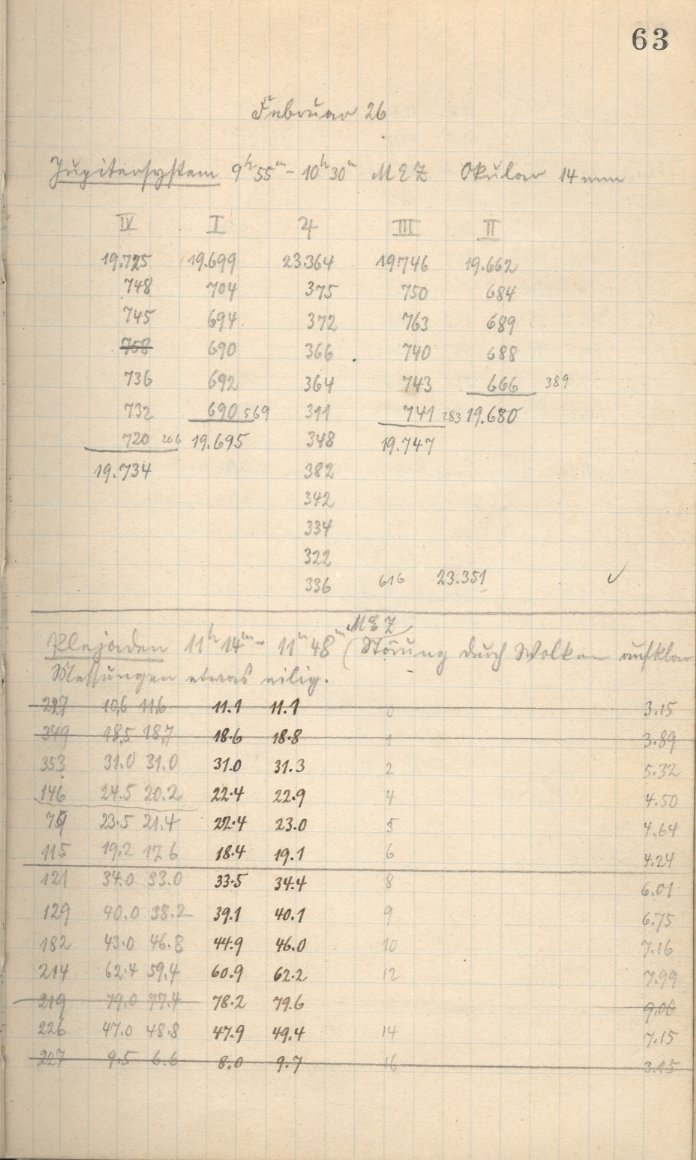 63
Februar 26
Jupitersystem 9h 55m - 10h 30m MEZ Okular 14 mm
IV I ♃ III II
19.725 19.699 23.364 19.746 19.662
748 704 375 750 684
745 694 372 763 689
758 690 366 740 688
736 692 364 743 666 389
732 690 569 311 741 283 19.680
720 206 19.695 348 19.747
19.734 382
342
334
322
336 616 23.351 ✓
Plejaden 11h 14m - 11h 48m MEZ (Störung durch Wolken
Messungen etwas eilig.
227 10.6 11.6 11.1 11.1 0 3.15
349 18.5 18.7 18.6 18.8 1 3.89
353 31.0 31.0 31.0 31.3 2 5.32
146 24.5 20.2 22.4 22.9 4 4.50
79 23.5 21.4 22.4 23.0 5 4.64
115 19.2 17.6 18.4 19.1 6 4.24
121 34.0 33.0 33.5 34.4 8 6.01
129 40.0 38.2 39.1 40.1 9 6.75
182 43.0 46.8 44.9 46.0 10 7.16
214 62.4 59.4 60.9 62.2 12 7.99
219 79.0 77.4 78.2 79.6 9.06
226 47.0 48.8 47.9 49.4 14 7.15
227 9.5 6.6 8.0 9.7 16